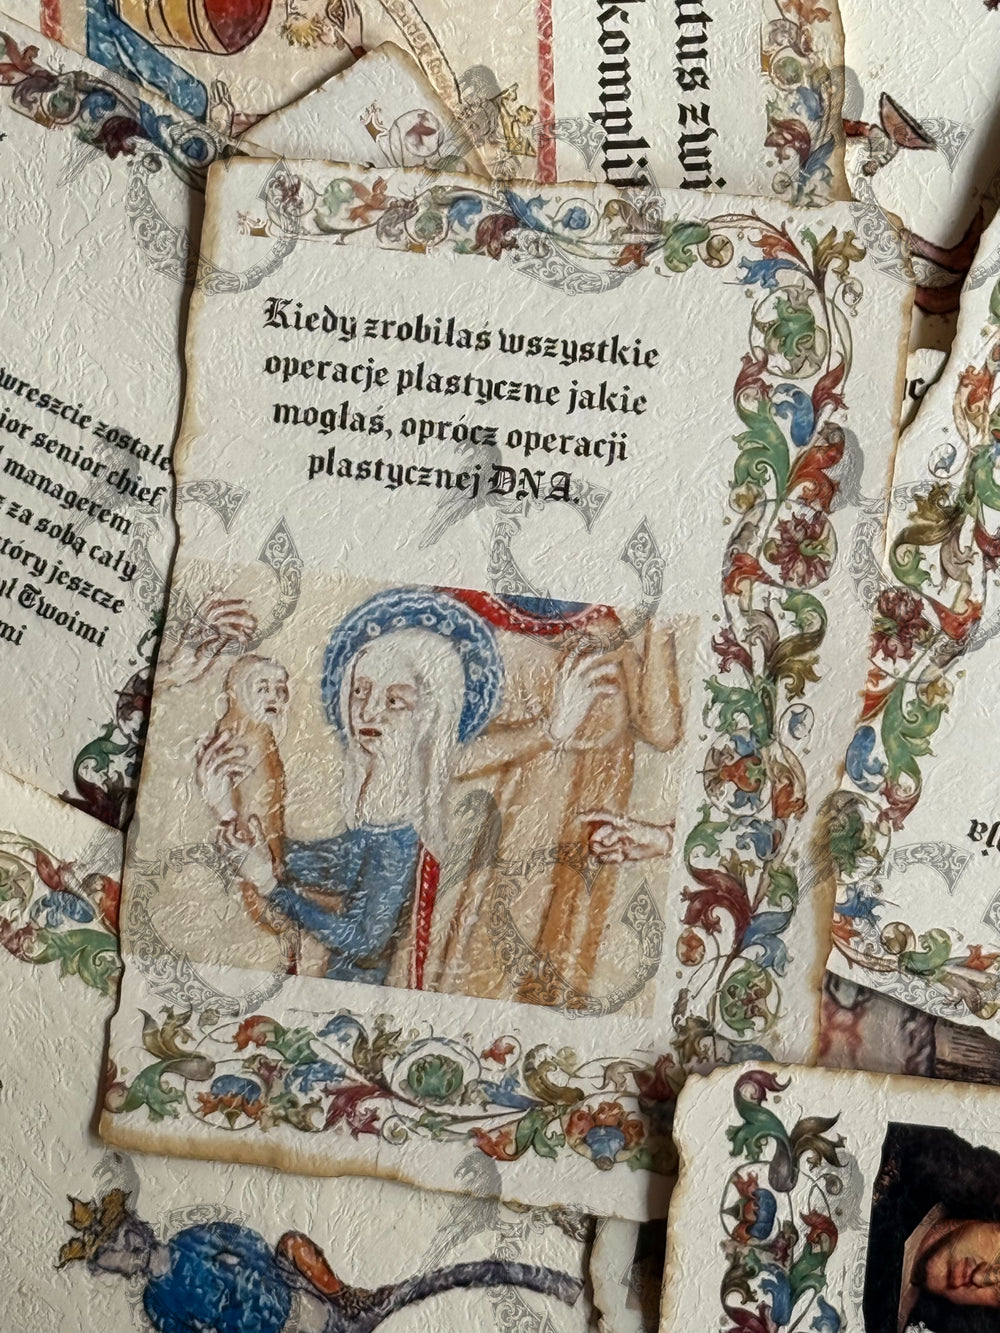 tus zwi
kompli
Kiedy zrobiłaś wszystkie
operacje plastyczne jakie
mogłaś, oprócz operacji
plastycznej DNA.
wreszcie zostałe
ior senior chief
managerem
z za sobą cały
tóry jeszcze
ył Twoimi
mi